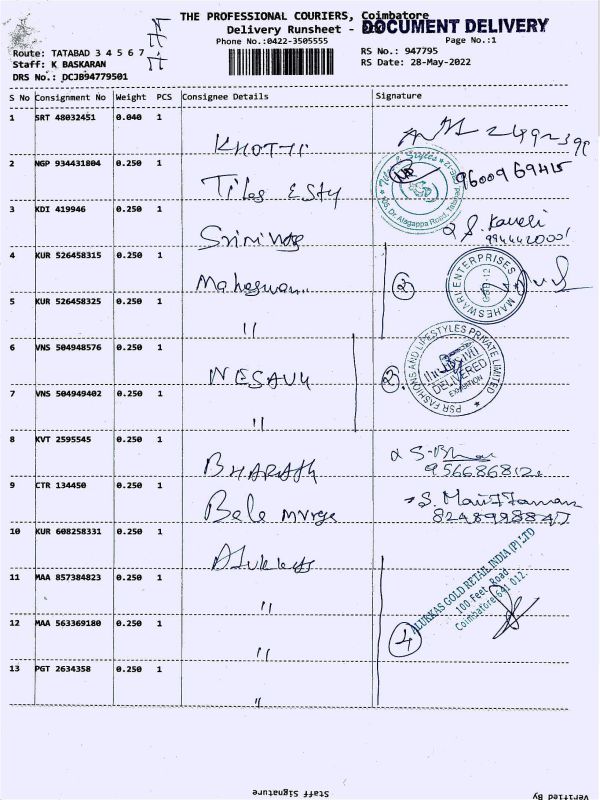 THE PROFESSIONAL COURIERS, Coimbatore
Delivery Runsheet -
DOCUMENT DELIVERY
Phone No.:0422-3505555
Page No.:1
Route: TATABAD 3 4 5 6 7
RS No.: 947795
Staff: K BASKARAN
RS Date: 28-May-2022
DRS No.: DCJB94779501
S No Consignment No Weight PCS Consignee Details Signature
1 SRT 48032451 0.040 1
2 NGP 934431804 0.250 1 Tiles
9600969415
3 KDI 419946 0.250 1
S. Kaveli
9944420001
4 KUR 526458315 0.250 1 2
MAHESWARI ENTERPRISES
5 KUR 526458325 0.250 1 "
6 VNS 504948576 0.250 1 NESAVU 2
PSR FASHIONS AND LIFESTYLES PRIVATE LIMITED
DELIVERED
EXHIBITION
7 VNS 504949402 0.250 1 "
8 KVT 2595545 0.250 1 BHARATH
9 CTR 134450 0.250 1 Bala
10 KUR 608258331 0.250 1 Alukkas
ALUKKAS GOLD RETAIL INDIA (P) LTD
100 Feet Road
Coimbatore 641 012.
11 MAA 857384823 0.250 1 "
12 MAA 563369180 0.250 1 " 4
13 PGT 2634358 0.250 1 "
Staff Signature
Verified By